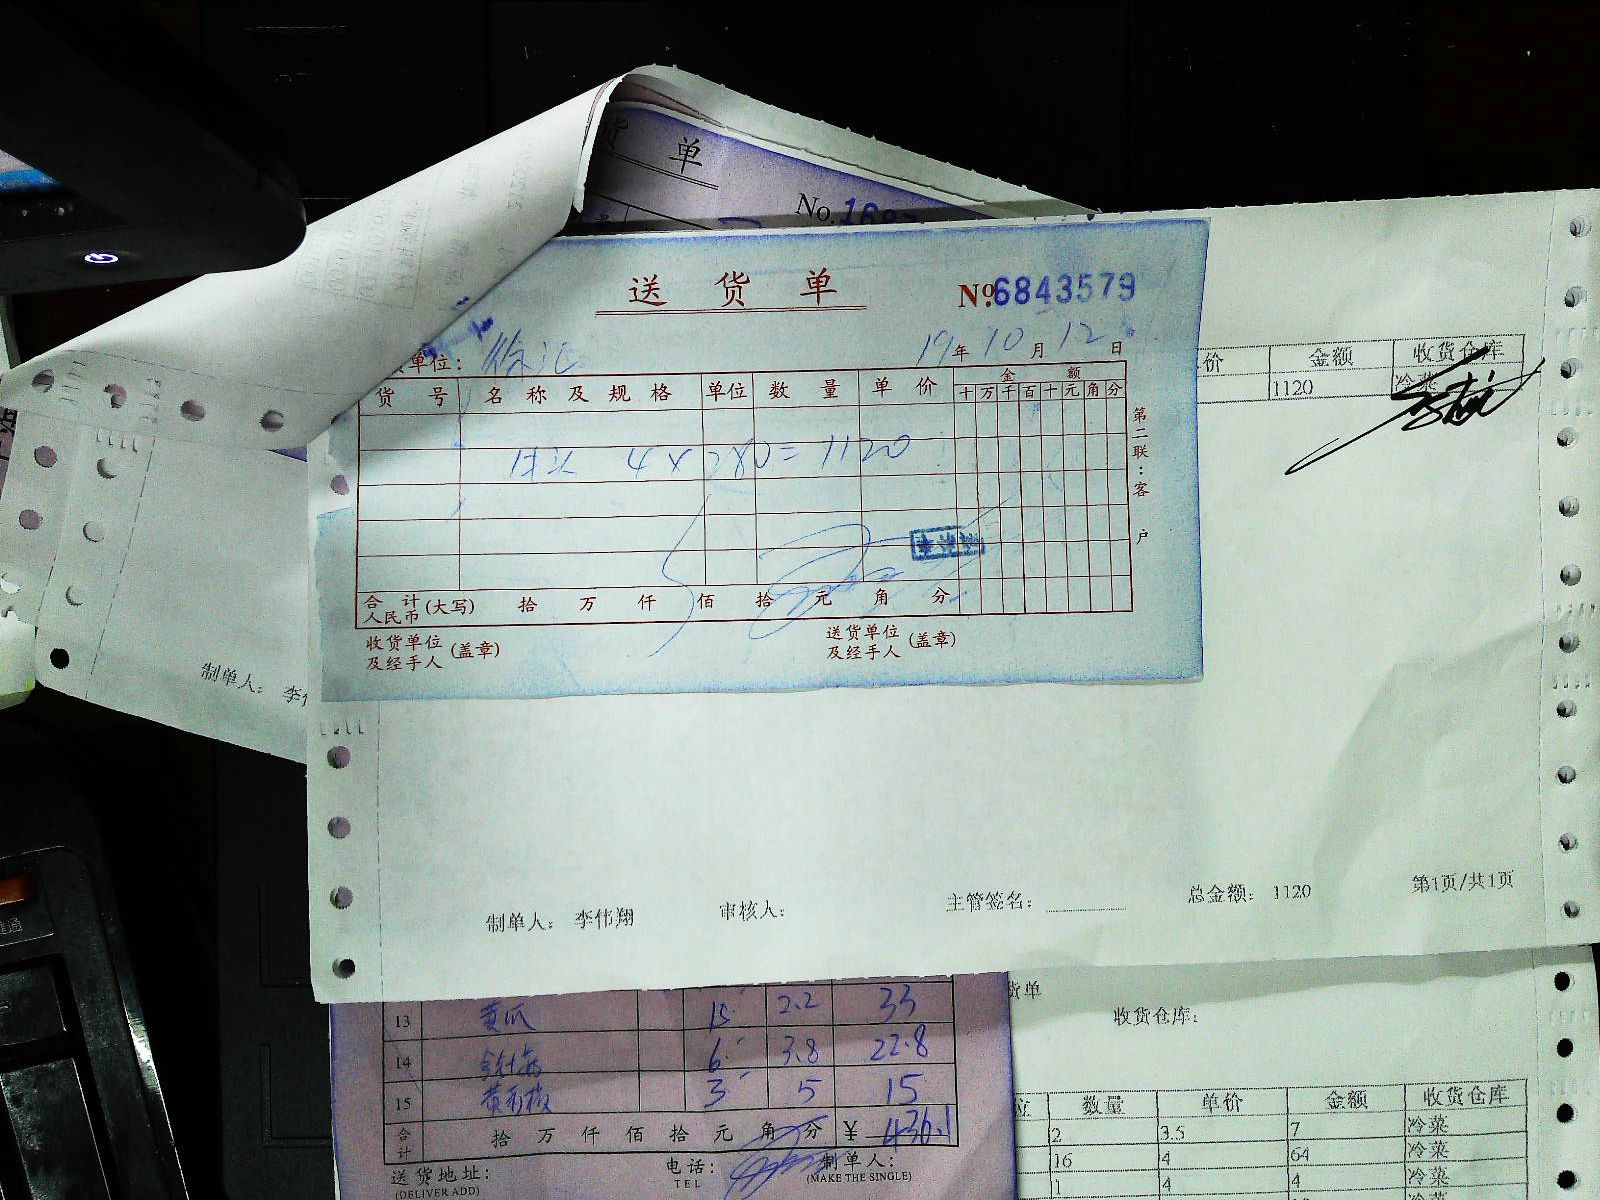 货 单
No.
送 货 单
№6843579
单位: 徐汇
19年10月12日
货 号 名 称 及 规 格 单位 数 量 单 价 金 额
十 万 千 百 十 元 角 分
4×280=1120
第二联:客户
合 计
人民币(大写) 拾 万 仟 佰 拾 元 角 分
收货单位
及经手人(盖章)
送货单位
及经手人(盖章)
价 金额 收货仓库
1120 冷菜
制单人: 李
制单人: 李伟翔 审核人: 主管签名: 总金额: 1120 第1页/共1页
13 黄瓜 15 2.2 33
14 6 3.8 22.8
15 3 5 15
合计 拾 万 仟 佰 拾 元 角 分 ¥ 436.1
送货地址: 电话: 制单人:
(DELIVER ADD) TEL (MAKE THE SINGLE)
货单
收货仓库:
位 数量 单价 金额 收货仓库
2 3.5 7 冷菜
16 4 64 冷菜
1 4 4 冷菜